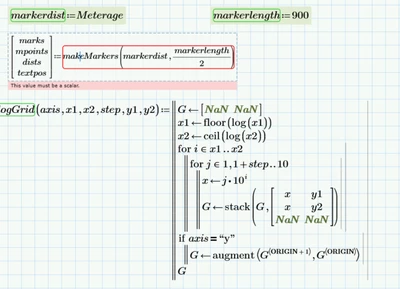 markerdist:=Meterage markerlength:=900
[marks mpoints dists textpos]:=makeMarkers(markerdist, markerlength/2)
This value must be a scaler.
logGrid(axis,x1,x2,step,y1,y2):= G←[NaN NaN]
x1←floor(log(x1))
x2←ceil(log(x2))
for i∈x1..x2
for j∈1,1+step..10
x←j·10^i
G←stack(G,[x y1
x y2
NaN NaN])
if axis="y"
G←augment(G^⟨ORIGIN+1⟩,G^⟨ORIGIN⟩)
G